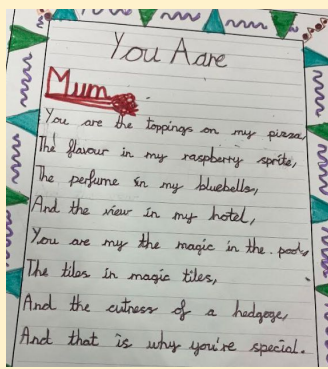 You Aare
Mum
You are the toppings on my pizza,
The flavour in my raspberry sprite,
The perfume in my bluebells,
And the view in my hotel,
You are my the magic in the pools,
The tiles in magic tiles,
And the cutness of a hedgoge,
And that is why you're special.